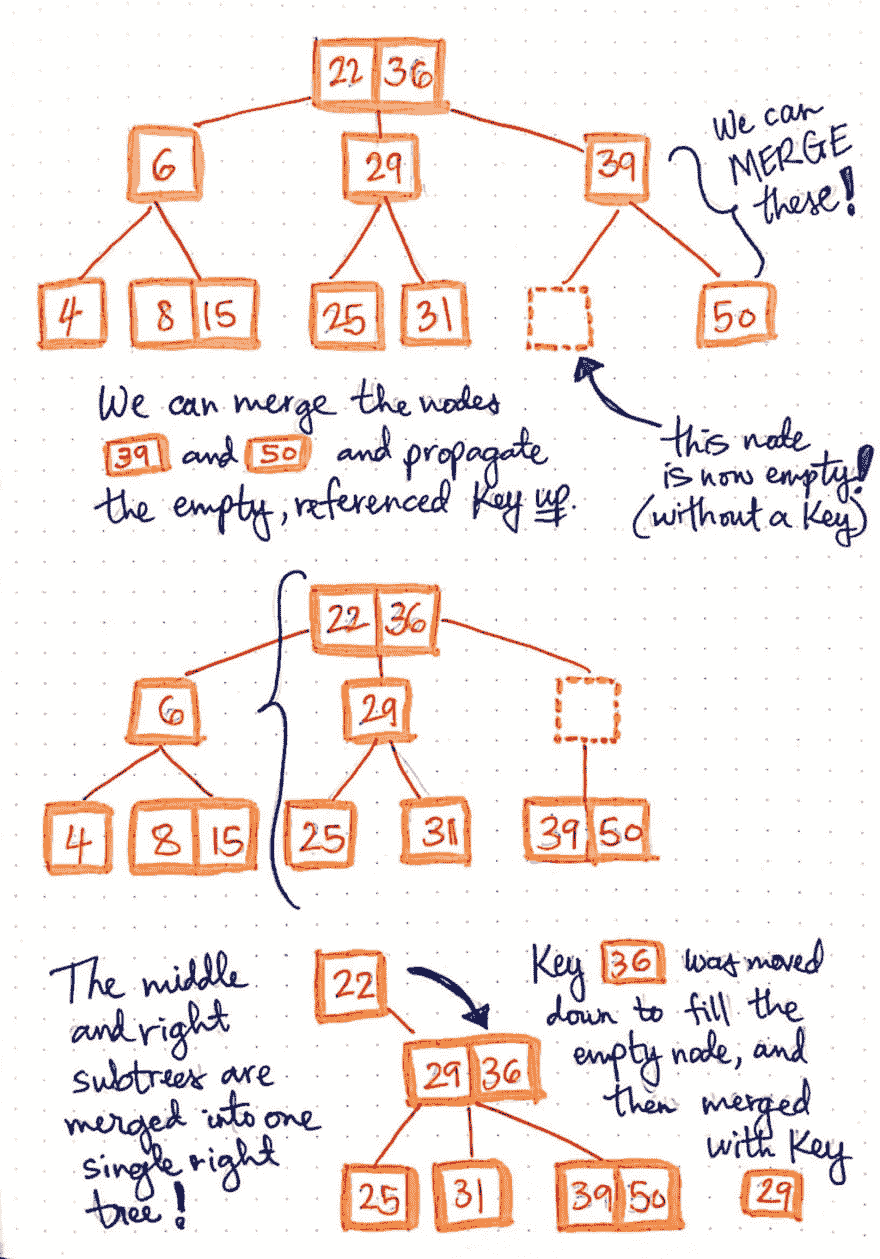 22 36
6 29 39
We can
MERGE
these!
4 8 15 25 31 50
We can merge the nodes
39 and 50 and propagate
the empty, referenced key up.
this node
is now empty!
(without a key)
22 36
6 29
4 8 15 25 31 39 50
The middle
and right
subtrees are
merged into one
single right
tree!
22
29 36
25 31 39 50
Key 36 was moved
down to fill the
empty node, and
then merged
with key
29